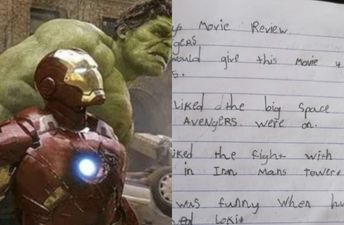 Movie Review
would give this Movie 4
s.
Liked the big space
AVENGERS were on.
the fight with
in Iron Mans tower
was funny when hu
Loki